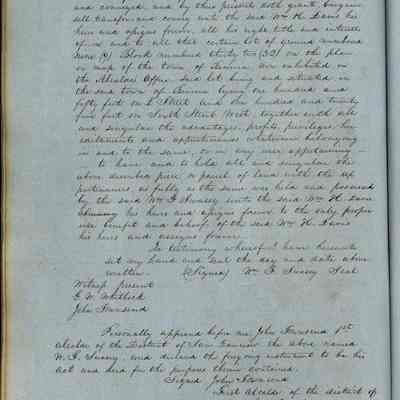 and conveyed and by these presents doth grant, bargain
sell transfer and convey unto the said Wm H. Davis his
heirs and assigns forever, all his right title and interest
of in and to all that certain lot of ground numbered
in Block numbered thirty two (32) on the plan
or map of the town of Benicia now exhibited in
the Alcaldes Office said lot being and situated in
the said town of Benicia lying one hundred and
fifty feet on Street and one hundred and twenty
five feet on Street West, together with all
and singular the advantages, profits, privileges, her-
editaments and appurtenances whatever belonging
in and to the same, or in any wise appertaining
to have and to hold all and singular the
above described piece or parcel of land with the ap
purtenances, as fully as the same was held and possessed
by the said Wm F. Swasey unto the said Wm H. Davis
his heirs and assigns forever to the only proper
use benefit and behoofs of the said Wm H. Davis
his heirs and assigns forever
In testimony whereof I have hereunto
set my hand and seal the day and date above
written (Signed) Wm F. Swasey Seal
Witness present
G. W. Whitlock
John Townsend
Personally appeared before me, John Townsend 1st
Alcalde of the District of San Francisco the above named
W. F. Swasey and declared the foregoing instrument to be his
act and deed for the purpose therein contained.
Signed John Townsend
First Alcalde of the district of